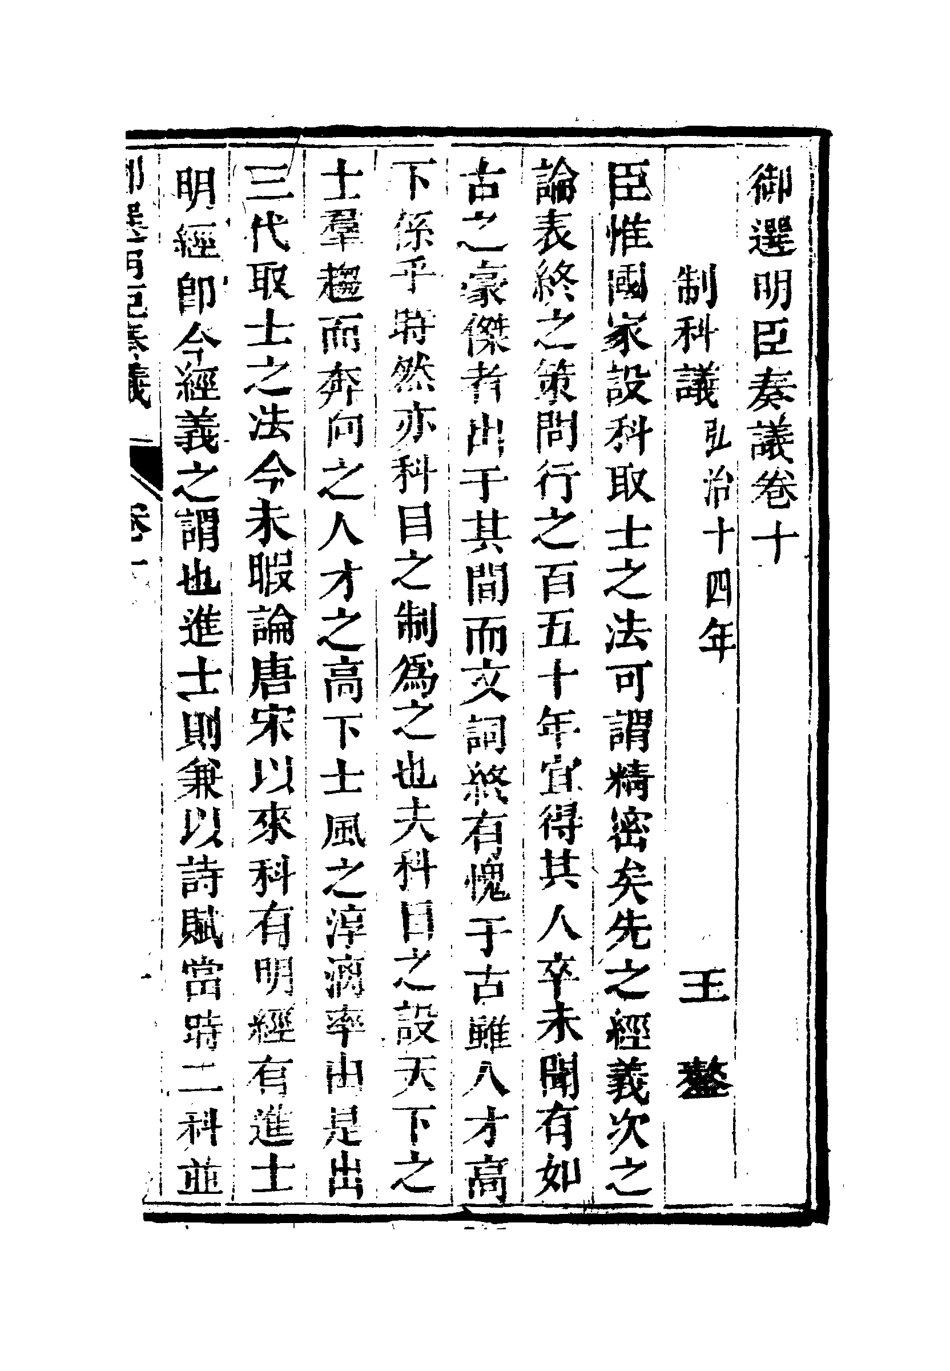 御選明臣奏議卷十
制科議弘治十四年 王鏊
臣惟國家設科取士之法可謂精密矣先之經義次之
論表終之策問行之百五十年宜得其人卒未聞有如
古之豪傑者出于其間而文詞終有愧于古雖人才高
下係乎時然亦科目之制爲之也夫科目之設天下之
士羣趨而奔向之人才之高下士風之淳漓率由是出
三代取士之法今未暇論唐宋以來科有明經有進士
明經卽今經義之謂也進士則兼以詩賦當時二科並